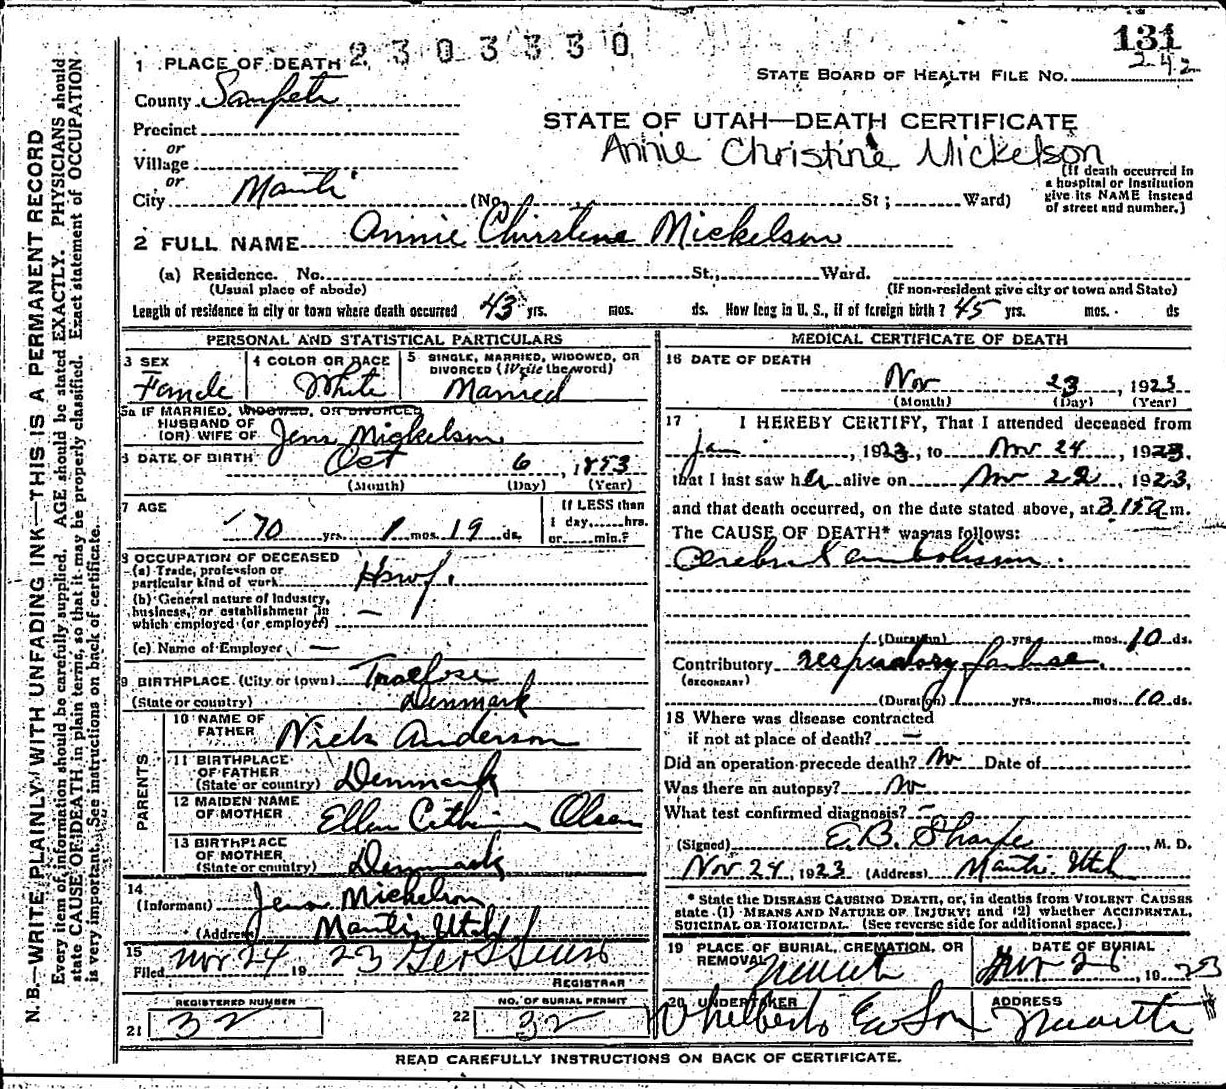 N. B.—WRITE PLAINLY WITH UNFADING INK—THIS IS A PERMANENT RECORD
Every item of information should be carefully supplied. AGE should be stated EXACTLY. PHYSICIANS should
state CAUSE OF DEATH in plain terms, so that it may be properly classified. Exact statement of OCCUPATION
is very important. See instructions on back of certificate.
2303330
131
242
1 PLACE OF DEATH
STATE BOARD OF HEALTH FILE NO.
County Sanpete
Precinct
or
Village
or
City Manti
STATE OF UTAH—DEATH CERTIFICATE
Annie Christine Mickelson
(No. St; Ward)
(If death occurred in
a hospital or institution
give its NAME instead
of street and number.)
2 FULL NAME Annie Christene Mickelson
(a) Residence. No. St., Ward.
(Usual place of abode)
(If non-resident give city or town and State)
Length of residence in city or town where death occurred 43 yrs. mos. ds. How long in U. S., if of foreign birth? 45 yrs. mos. ds
PERSONAL AND STATISTICAL PARTICULARS
3 SEX
Female
4 COLOR OR RACE
White
5 SINGLE, MARRIED, WIDOWED, OR
DIVORCED (Write the word)
Married
5a IF MARRIED, WIDOWED, OR DIVORCED
HUSBAND OF
(OR) WIFE OF Jens Mickelson
6 DATE OF BIRTH Oct 6, 1853
(Month) (Day) (Year)
7 AGE
70 yrs. 1 mos. 19 ds.
If LESS than
1 day,......hrs.
or......min.?
8 OCCUPATION OF DECEASED
(a) Trade, profession or
particular kind of work Hswf.
(b) General nature of industry,
business, or establishment in
which employed (or employer) —
(c) Name of Employer —
9 BIRTHPLACE (City or town)
(State or country) Denmark
PARENTS
10 NAME OF
FATHER Niels Anderson
11 BIRTHPLACE
OF FATHER
(State or country) Denmark
12 MAIDEN NAME
OF MOTHER Ellen Olsen
13 BIRTHPLACE
OF MOTHER
(State or country) Denmark
14
(Informant) Jens Mickelson
(Address) Manti, Utah
15
Filed Nov 24 1923
REGISTRAR
REGISTERED NUMBER
21 32
NO. OF BURIAL PERMIT
22 32
MEDICAL CERTIFICATE OF DEATH
16 DATE OF DEATH
Nov 23, 1923
(Month) (Day) (Year)
17 I HEREBY CERTIFY, That I attended deceased from
Jan, 1923, to Nov 24, 1923.
that I last saw her alive on Nov 22, 1923,
and that death occurred, on the date stated above, at 3.15 a m.
The CAUSE OF DEATH* was as follows:
Cerebral embolism.
(Duration) yrs. mos. 10 ds.
Contributory respiratory failure.
(SECONDARY)
(Duration) yrs. mos. 10 ds.
18 Where was disease contracted
if not at place of death? —
Did an operation precede death? No Date of
Was there an autopsy? No
What test confirmed diagnosis? —
(Signed) E.B. Sharpe, M. D.
Nov 24, 1923 (Address) Manti. Utah
* State the DISEASE CAUSING DEATH, or, in deaths from VIOLENT CAUSES
state (1) MEANS AND NATURE OF INJURY; and (2) whether ACCIDENTAL,
SUICIDAL OR HOMICIDAL. (See reverse side for additional space.)
19 PLACE OF BURIAL, CREMATION, OR
REMOVAL Manti
DATE OF BURIAL
Nov 26, 1923
20 UNDERTAKER
ADDRESS
Manti
READ CAREFULLY INSTRUCTIONS ON BACK OF CERTIFICATE.